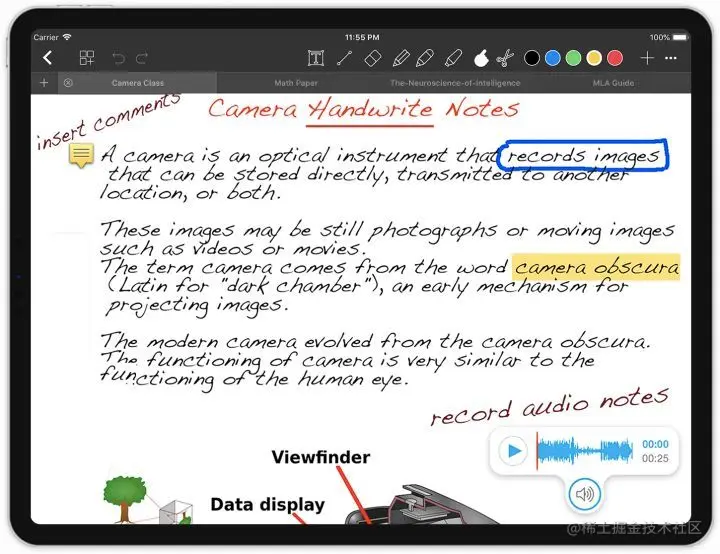 Carrier
11:55 PM
100%
Camera Class
Math Paper
The-Neuroscience-of-Intelligence
MLA Guide
insert comments
Camera Handwrite Notes
A camera is an optical instrument that records images
that can be stored directly, transmitted to another
location, or both.
These images may be still photographs or moving images
such as videos or movies.
The term camera comes from the word camera obscura
(Latin for "dark chamber"), an early mechanism for
projecting images.
The modern camera evolved from the camera obscura.
The functioning of camera is very similar to the
functioning of the human eye.
record audio notes
00:00
00:25
Viewfinder
Data display
@稀土掘金技术社区